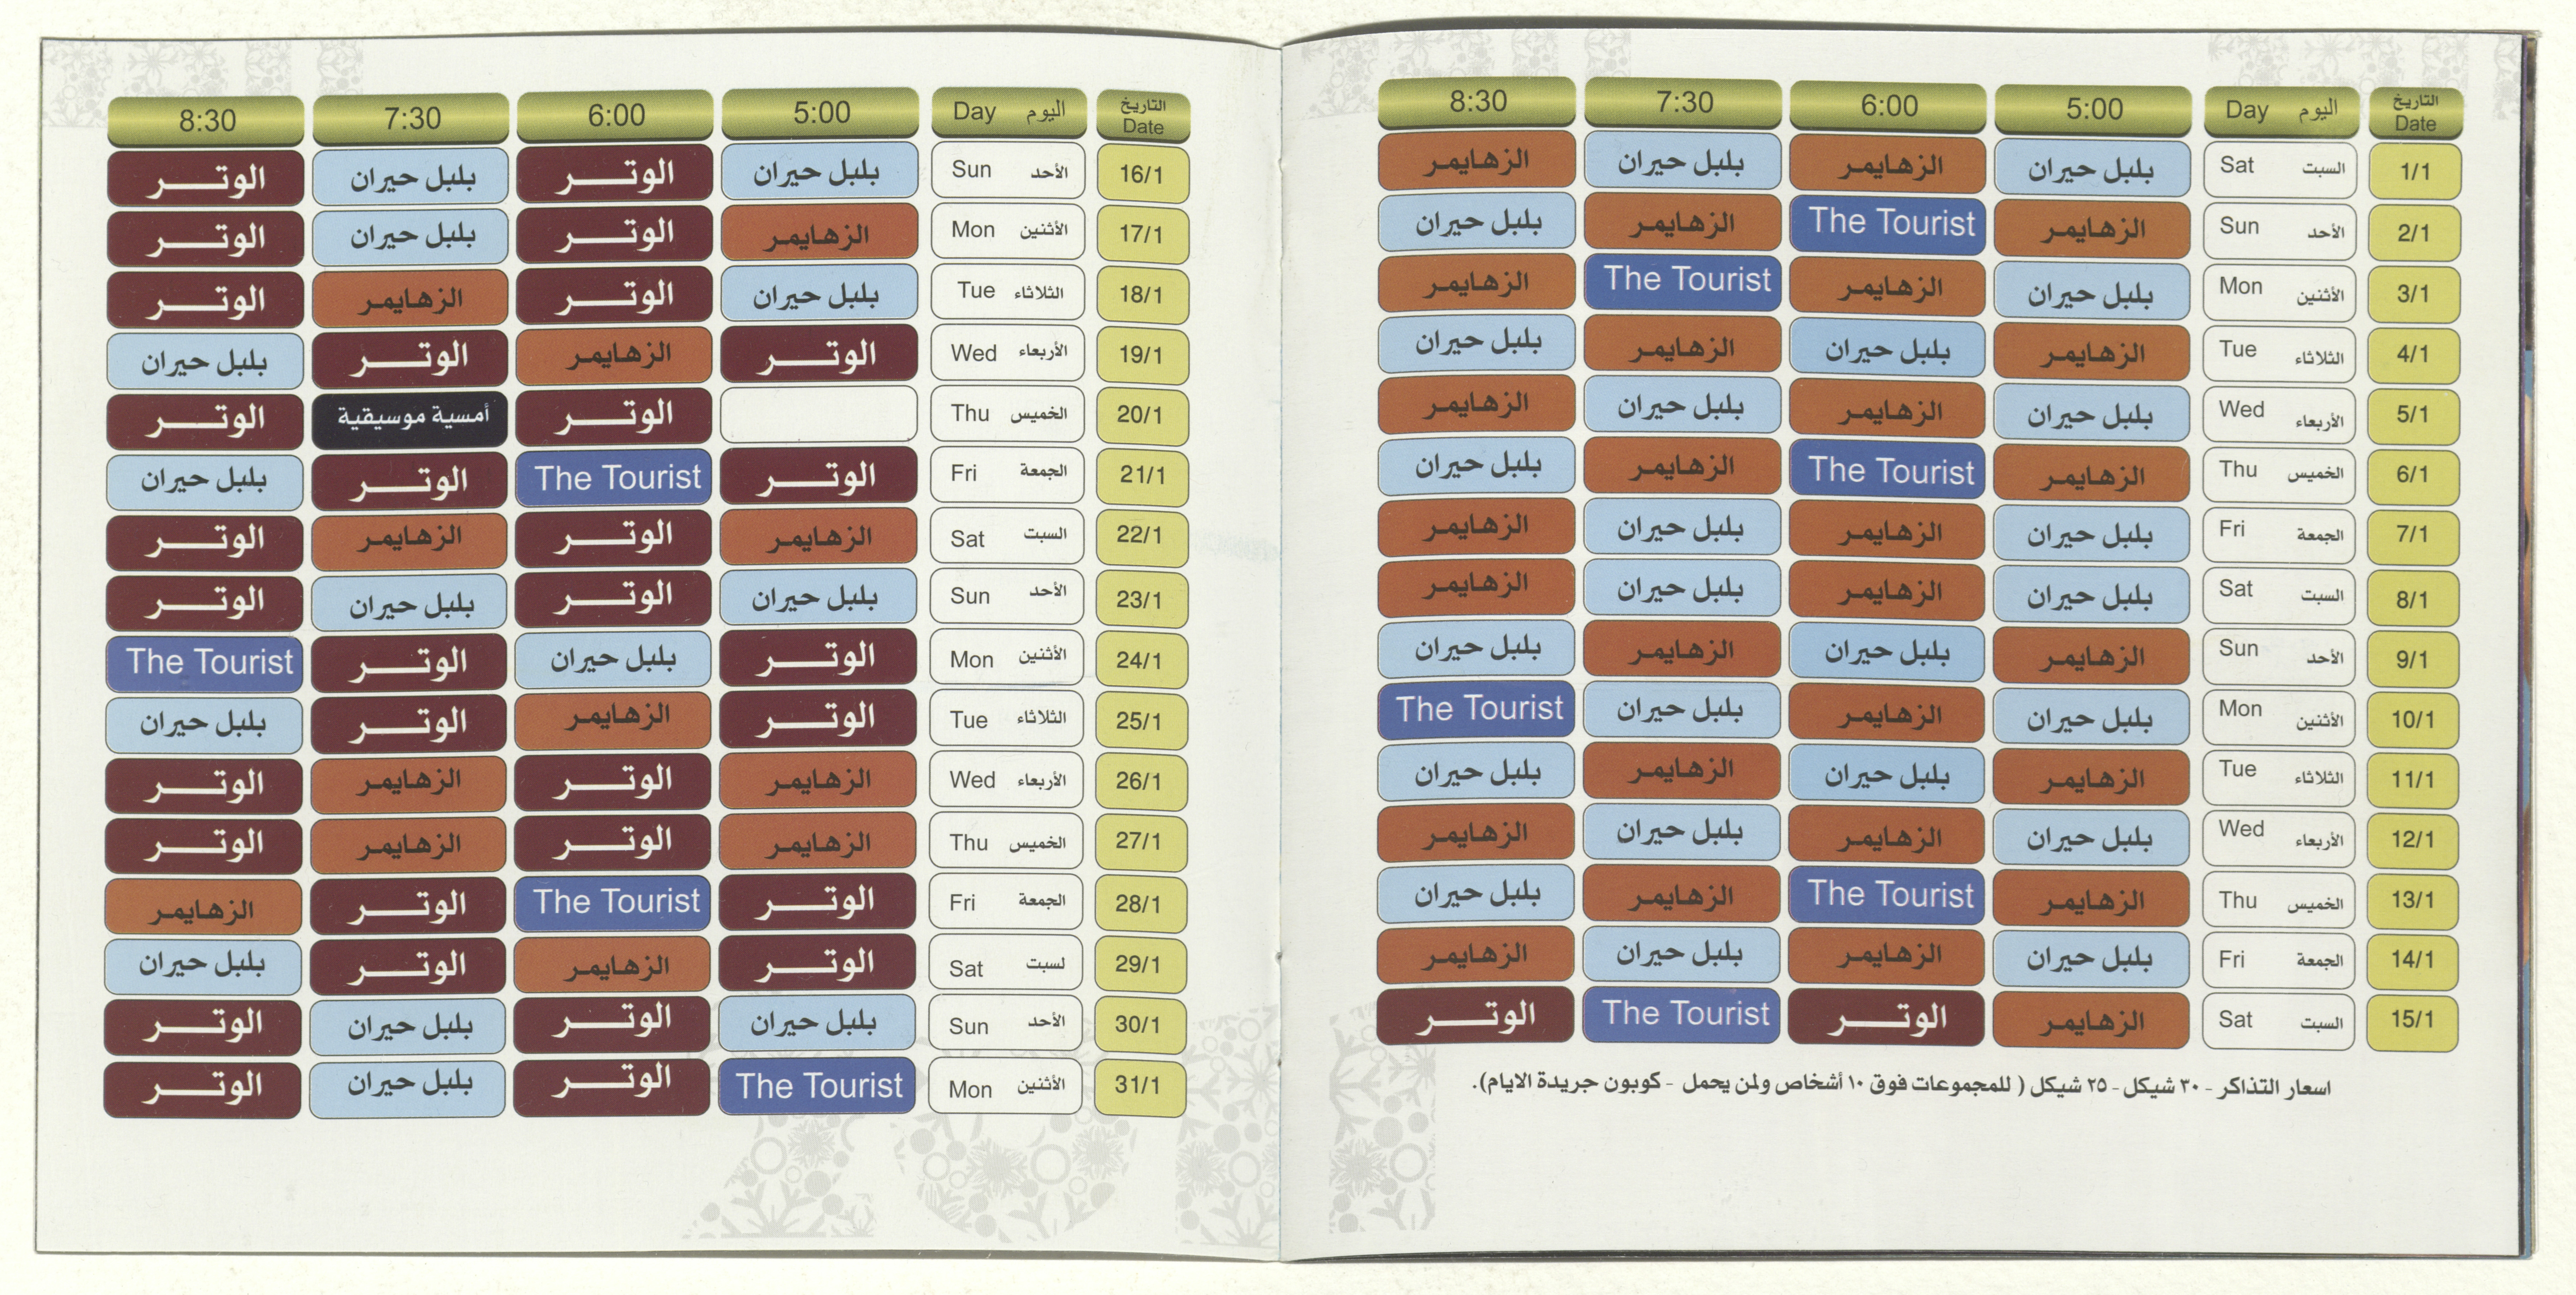 التاريخ Date اليوم Day 5:00 6:00 7:30 8:30
1/1 السبت Sat بلبل حيران الزهايمر بلبل حيران الزهايمر
2/1 الأحد Sun الزهايمر The Tourist الزهايمر بلبل حيران
3/1 الأثنين Mon بلبل حيران الزهايمر The Tourist الزهايمر
4/1 الثلاثاء Tue الزهايمر بلبل حيران الزهايمر بلبل حيران
5/1 الأربعاء Wed بلبل حيران الزهايمر بلبل حيران الزهايمر
6/1 الخميس Thu الزهايمر The Tourist الزهايمر بلبل حيران
7/1 الجمعة Fri بلبل حيران الزهايمر بلبل حيران الزهايمر
8/1 السبت Sat بلبل حيران الزهايمر بلبل حيران الزهايمر
9/1 الأحد Sun الزهايمر بلبل حيران الزهايمر بلبل حيران
10/1 الأثنين Mon بلبل حيران الزهايمر بلبل حيران The Tourist
11/1 الثلاثاء Tue الزهايمر بلبل حيران الزهايمر بلبل حيران
12/1 الأربعاء Wed بلبل حيران الزهايمر بلبل حيران الزهايمر
13/1 الخميس Thu الزهايمر The Tourist الزهايمر بلبل حيران
14/1 الجمعة Fri بلبل حيران الزهايمر بلبل حيران الزهايمر
15/1 السبت Sat الزهايمر الوتر The Tourist الوتر
اسعار التذاكر - ٣٠ شيكل - ٢٥ شيكل ( للمجموعات فوق ١٠ أشخاص ولمن يحمل - كوبون جريدة الايام).
التاريخ Date اليوم Day 5:00 6:00 7:30 8:30
16/1 الأحد Sun بلبل حيران الوتر بلبل حيران الوتر
17/1 الأثنين Mon الزهايمر الوتر بلبل حيران الوتر
18/1 الثلاثاء Tue بلبل حيران الوتر الزهايمر الوتر
19/1 الأربعاء Wed الوتر الزهايمر الوتر بلبل حيران
20/1 الخميس Thu الوتر أمسية موسيقية الوتر
21/1 الجمعة Fri الوتر The Tourist الوتر بلبل حيران
22/1 السبت Sat الزهايمر الوتر الزهايمر الوتر
23/1 الأحد Sun بلبل حيران الوتر بلبل حيران الوتر
24/1 الأثنين Mon الوتر بلبل حيران الوتر The Tourist
25/1 الثلاثاء Tue الوتر الزهايمر الوتر بلبل حيران
26/1 الأربعاء Wed الزهايمر الوتر الزهايمر الوتر
27/1 الخميس Thu الزهايمر الوتر الزهايمر الوتر
28/1 الجمعة Fri الوتر The Tourist الوتر الزهايمر
29/1 لسبت Sat الوتر الزهايمر الوتر بلبل حيران
30/1 الأحد Sun بلبل حيران الوتر بلبل حيران الوتر
31/1 الأثنين Mon The Tourist الوتر بلبل حيران الوتر